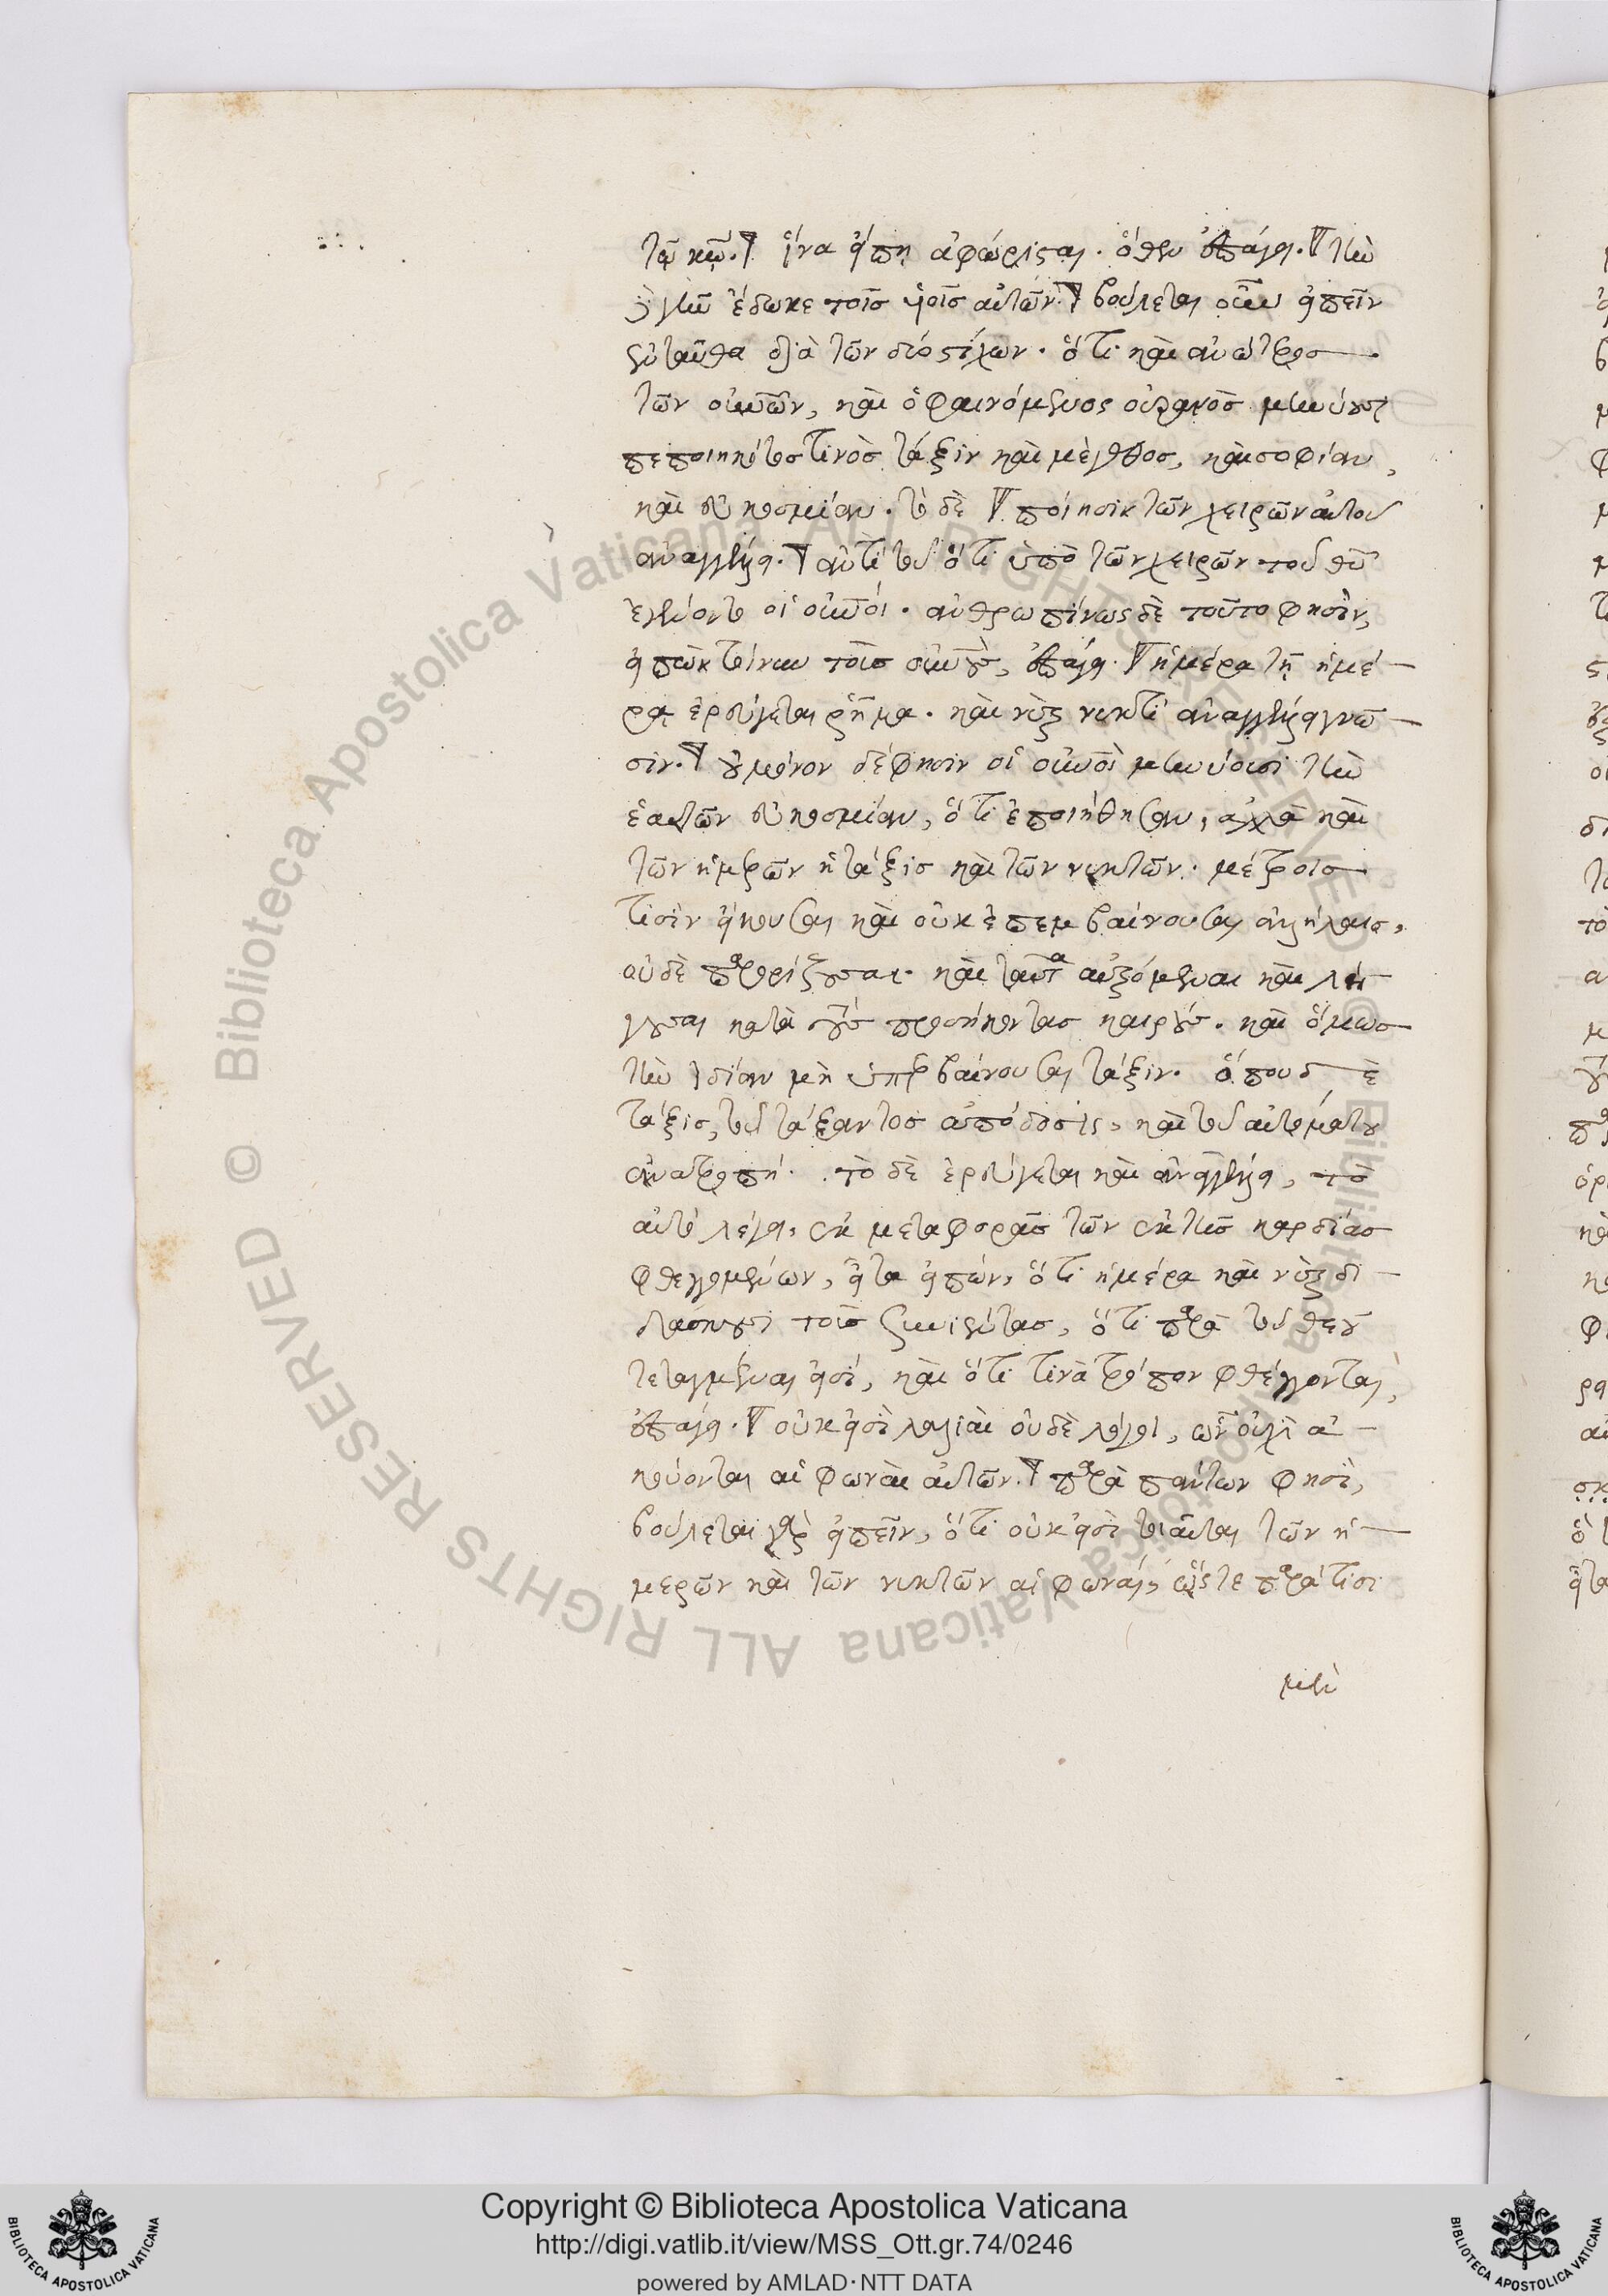 τῷ κῷ. ἵνα εἴπῃ ἀφώρισαι. ὅθεν ἐπάγει. τὴν
δὲ γῆν ἔδωκε τοῖς υἱοῖς αὐτῶν. βούλεται οὖν εἰπεῖν
ἐνταῦθα διὰ τῶν δύο στίχων. ὅτι καὶ ἀνώτερος
τῶν οὐνῶν, καὶ ὁ φαινόμενος οὐρανὸς μηνύουσι
πεποιηκότος τινὸς τάξιν καὶ μέγεθος, καὶ σοφίαν,
καὶ εὐκοσμίαν. τὸ δὲ ποίησιν τῶν χειρῶν αὐτοῦ
ἀναγγέλλει. ἀντὶ τοῦ ὅτι ὑπὸ τῶν χειρῶν τοῦ θῦ
ἐγένοντο οἱ οὐνοί. ἀνθρωπίνως δὲ τοῦτο φησὶν,
ἡμέρα τῇ ἡμέ-
ρᾳ ἐρεύγεται ῥῆμα. καὶ νὺξ νυκτὶ ἀναγγέλλει γνῶ-
σιν. οὐ μόνον δέ φησιν οἱ οὐνοὶ μηνύουσι τὴν
ἑαυτῶν εὐκοσμίαν, ὅτι ἐποιήθησαν, ἀλλὰ καὶ
τῶν ἡμερῶν ἡ τάξις καὶ τῶν νυκτῶν. μέτροις
τισὶν εἴκουσαι καὶ οὐκ ἐπεμβαίνουσαι ἀλλήλαις,
οὐδὲ παρορίζουσαι. καὶ ταῦτα αὐξόμεναι καὶ λή-
γουσαι κατὰ τοὺς προσήκοντας καιρούς. καὶ ὅμως
τὴν ἰδίαν μὴ ὑπερβαίνουσαι τάξιν. ὅπου δὲ
τάξις, τοῦ τάξαντος ἀπόδοσις, καὶ τοῦ αὐτομάτου
ἀνατροπή. τὸ δὲ ἐρεύγεται καὶ ἀναγγέλλει, τὸ
αὐτὸ λέγει, ἐκ μεταφορᾶς τῶν ἐκ τῆς καρδίας
φθεγγομένων, εἶτα εἰπὼν, ὅτι ἡμέρα καὶ νὺξ δι-
δάσκουσι τοὺς συνιέντας, ὅτι παρὰ τοῦ θεοῦ
τεταγμέναι εἰσί, καὶ ὅτι τινὰ τρόπον φθέγγονται,
ἐπάγει. οὐκ εἰσὶ λαλιαὶ οὐδὲ λόγοι, ὧν οὐχὶ ἀ-
κούονται αἱ φωναὶ αὐτῶν. παρὰ πάντων φησὶ,
βούλεται γὰρ εἰπεῖν, ὅτι οὐκ εἰσὶ τοιαῦται τῶν ἡ-
μερῶν καὶ τῶν νυκτῶν αἱ φωναί, ὥστε παρά τισι
μὲν
Copyright © Biblioteca Apostolica Vaticana
http://digi.vatlib.it/view/MSS_Ott.gr.74/0246
powered by AMLAD·NTT DATA